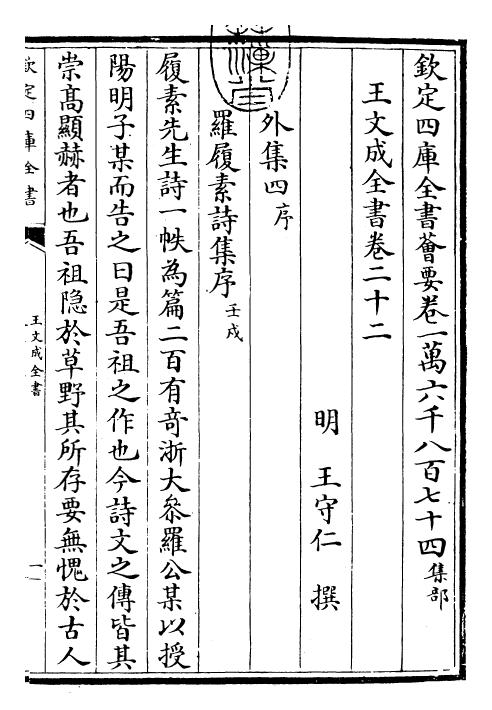 欽定四庫全書薈要卷一萬六千八百七十四 集部
王文成全書卷二十二
明 王守仁 撰
外集四 序
羅履素詩集序 壬戌
履素先生詩一帙為篇二百有奇浙大叅羅公某以授
陽明子某而告之曰是吾祖之作也今詩文之傳皆其
崇髙顯赫者也吾祖隠於草野其所存要無愧於古人
欽定四庫全書
王文成全書
一